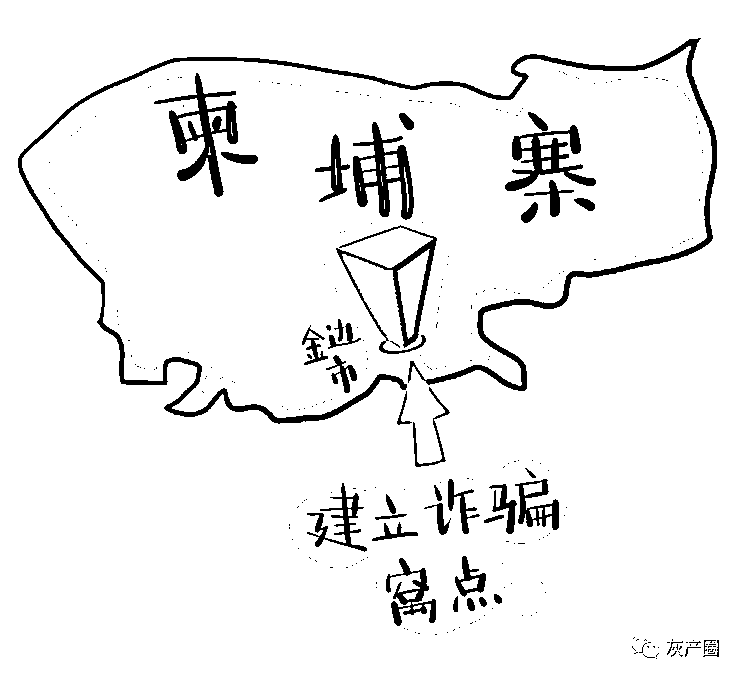 柬埔寨
金边
市
建立诈骗
窝点
灰产圈